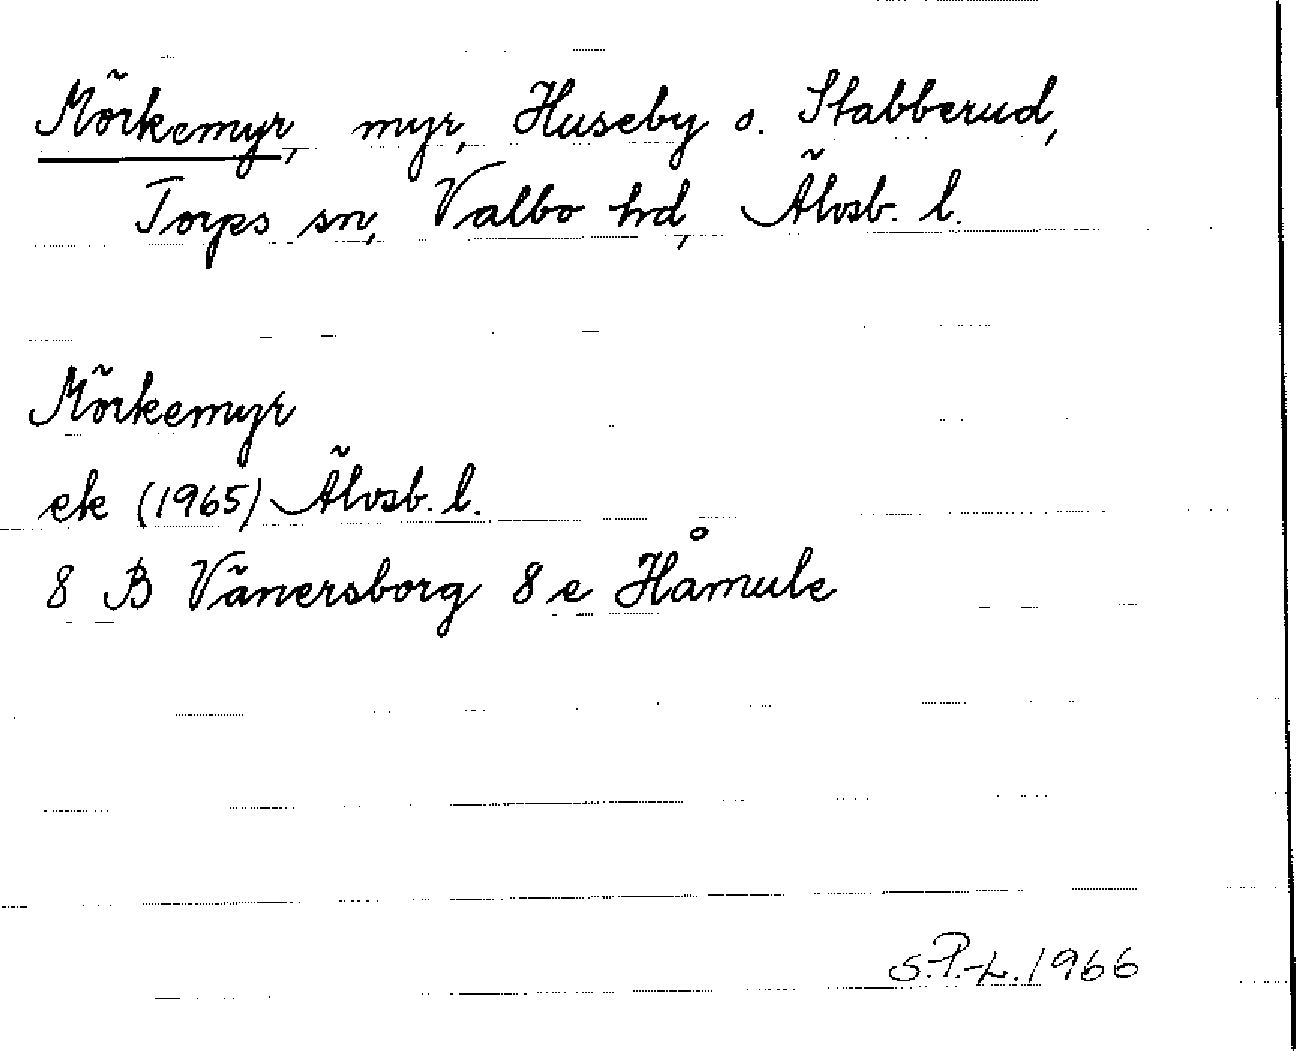 Mörkemyr, myr, Huseby o. Stabberud,
Torps sn, Valbo hd, Älvsb. l.
Mörkemyr
ek (1965) Älvsb. l.
8 B Vänersborg 8 e Håmule
S.P.-L. 1966